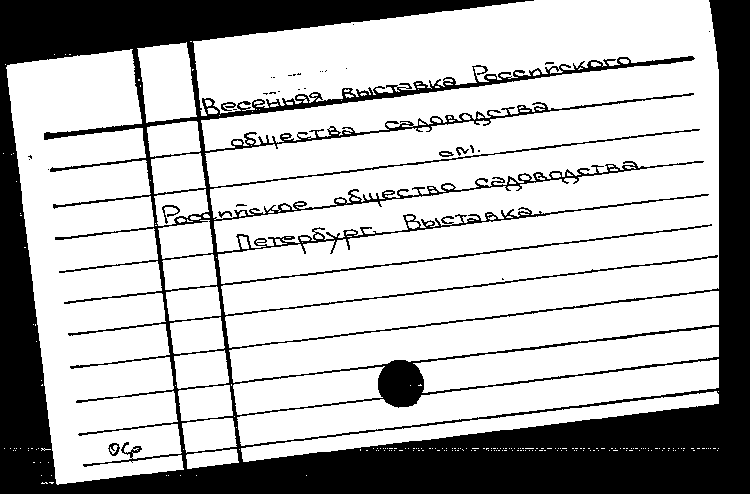 Весенняя выставка Российского
общества садоводства.
см.
Российское общество садоводства.
Петербург. Выставка.